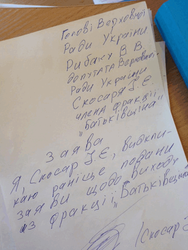 Голові Верховної
Ради України
Рибаку В.В.
депутата Верховної
Ради України
Скосаря І.Є.
члена фракції
"Батьківщина"
Заява
Я, Скосар І.Є, відкли-
каю раніше подані
заяви щодо виходу
із фракції "Батьківщина"
(Скосар